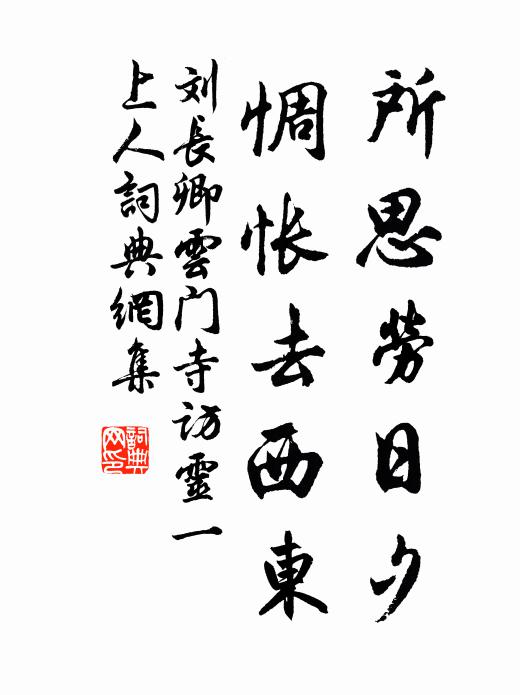 所思勞日夕
惆怅去西東
刘長卿雲门寺访靈一
上人詞典網集
詞典
网印